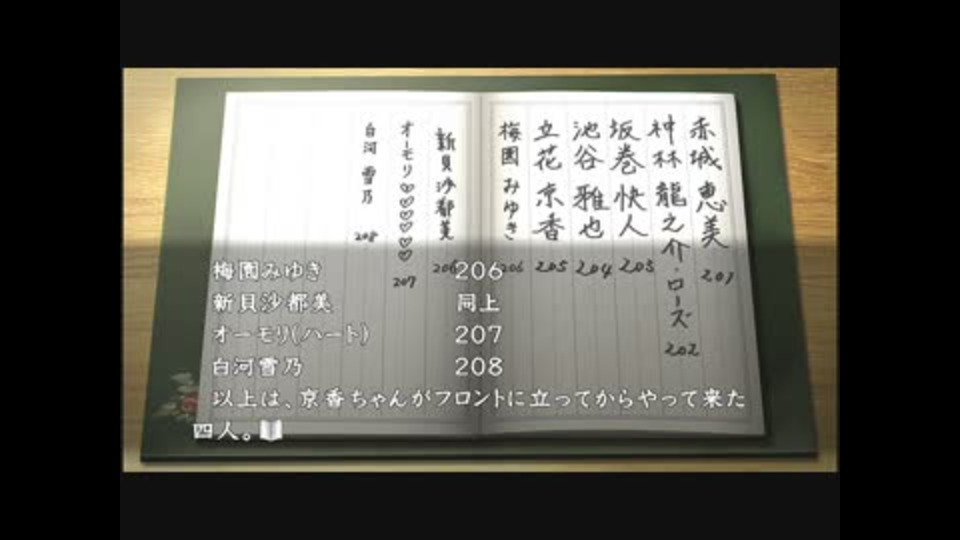 赤城 恵美 201
神林 龍之介・ローズ 202
坂巻 快人 203
池谷 雅也 204
立花 京香 205
梅園 みゆき 206
新貝 沙都美 206
オーモリ♡♡♡♡♡♡ 207
白河 雪乃 208
梅園みゆき 206
新貝沙都美 同上
オーモリ(ハート) 207
白河雪乃 208
以上は、京香ちゃんがフロントに立ってからやって来た
四人。